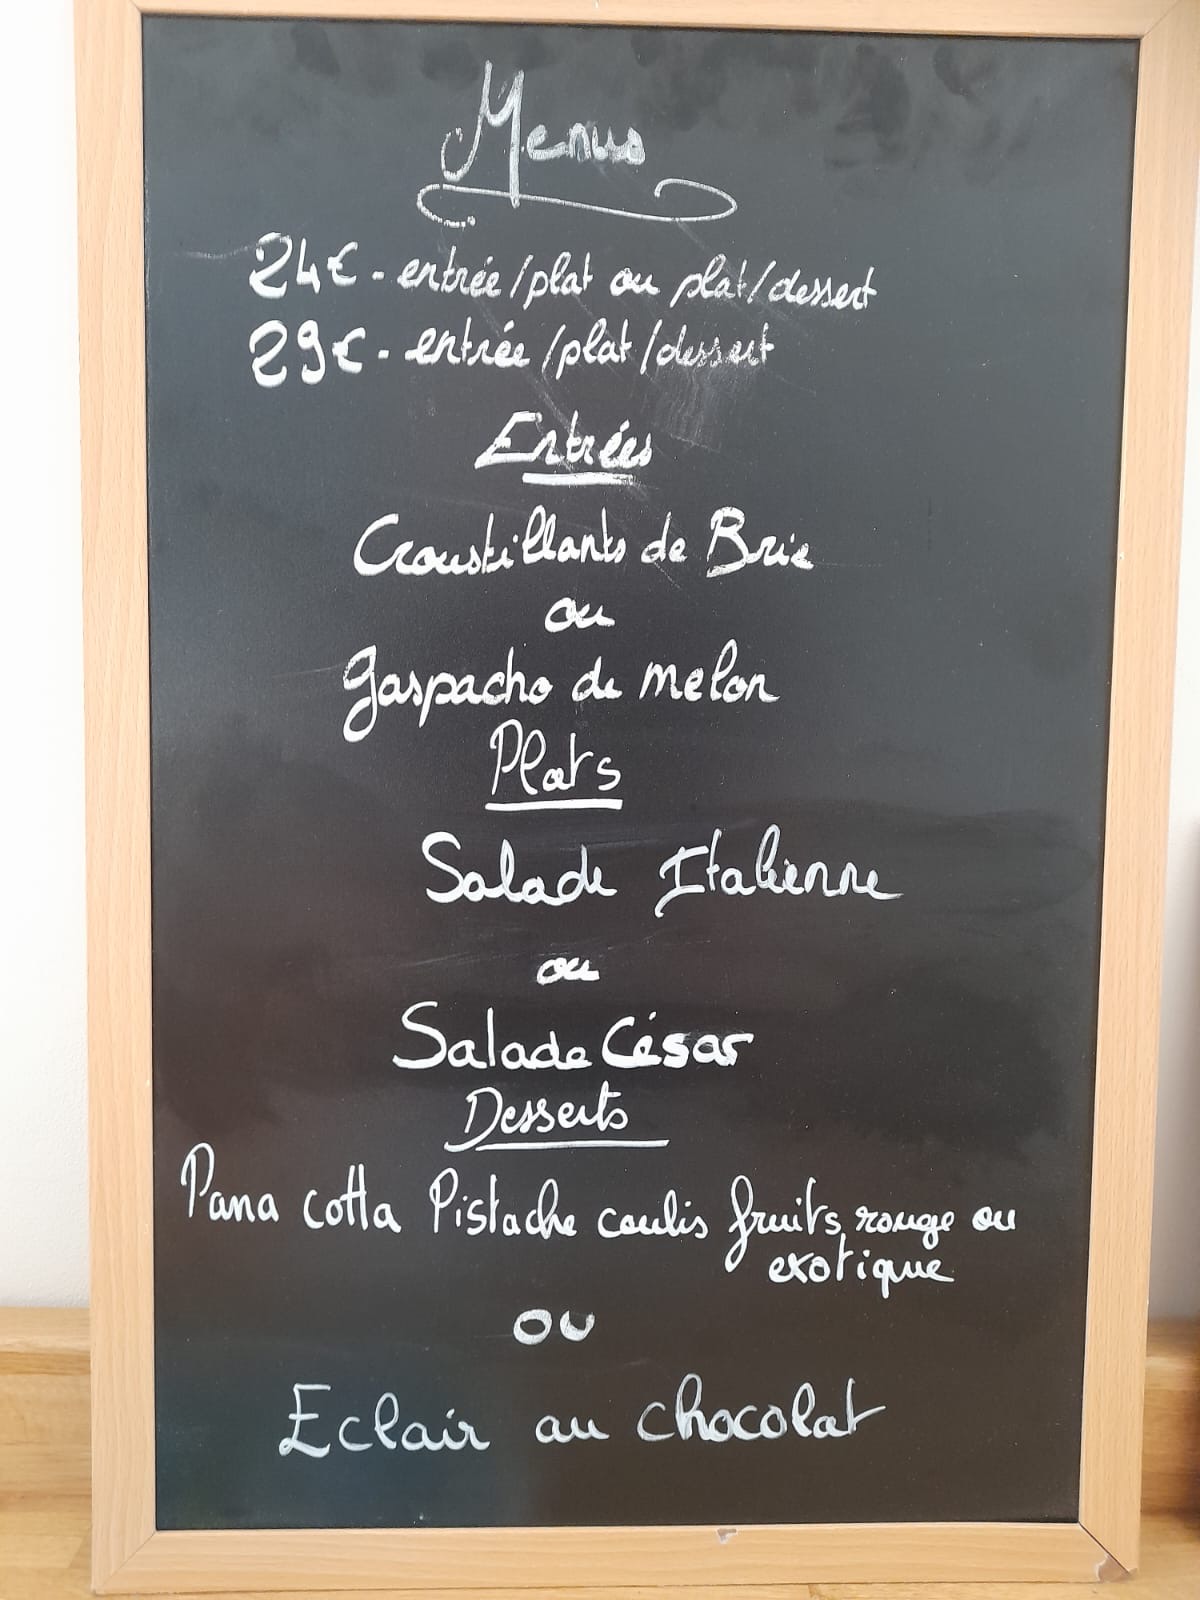 Menus
24€ - entrée/plat ou plat/dessert
29€ - entrée/plat/dessert
Entrées
Croustillants de Brie
ou
gaspacho de melon
Plats
Salade Italienne
ou
Salade César
Desserts
Pana cotta Pistache coulis fruits rouge ou
exotique
ou
Eclair au chocolat